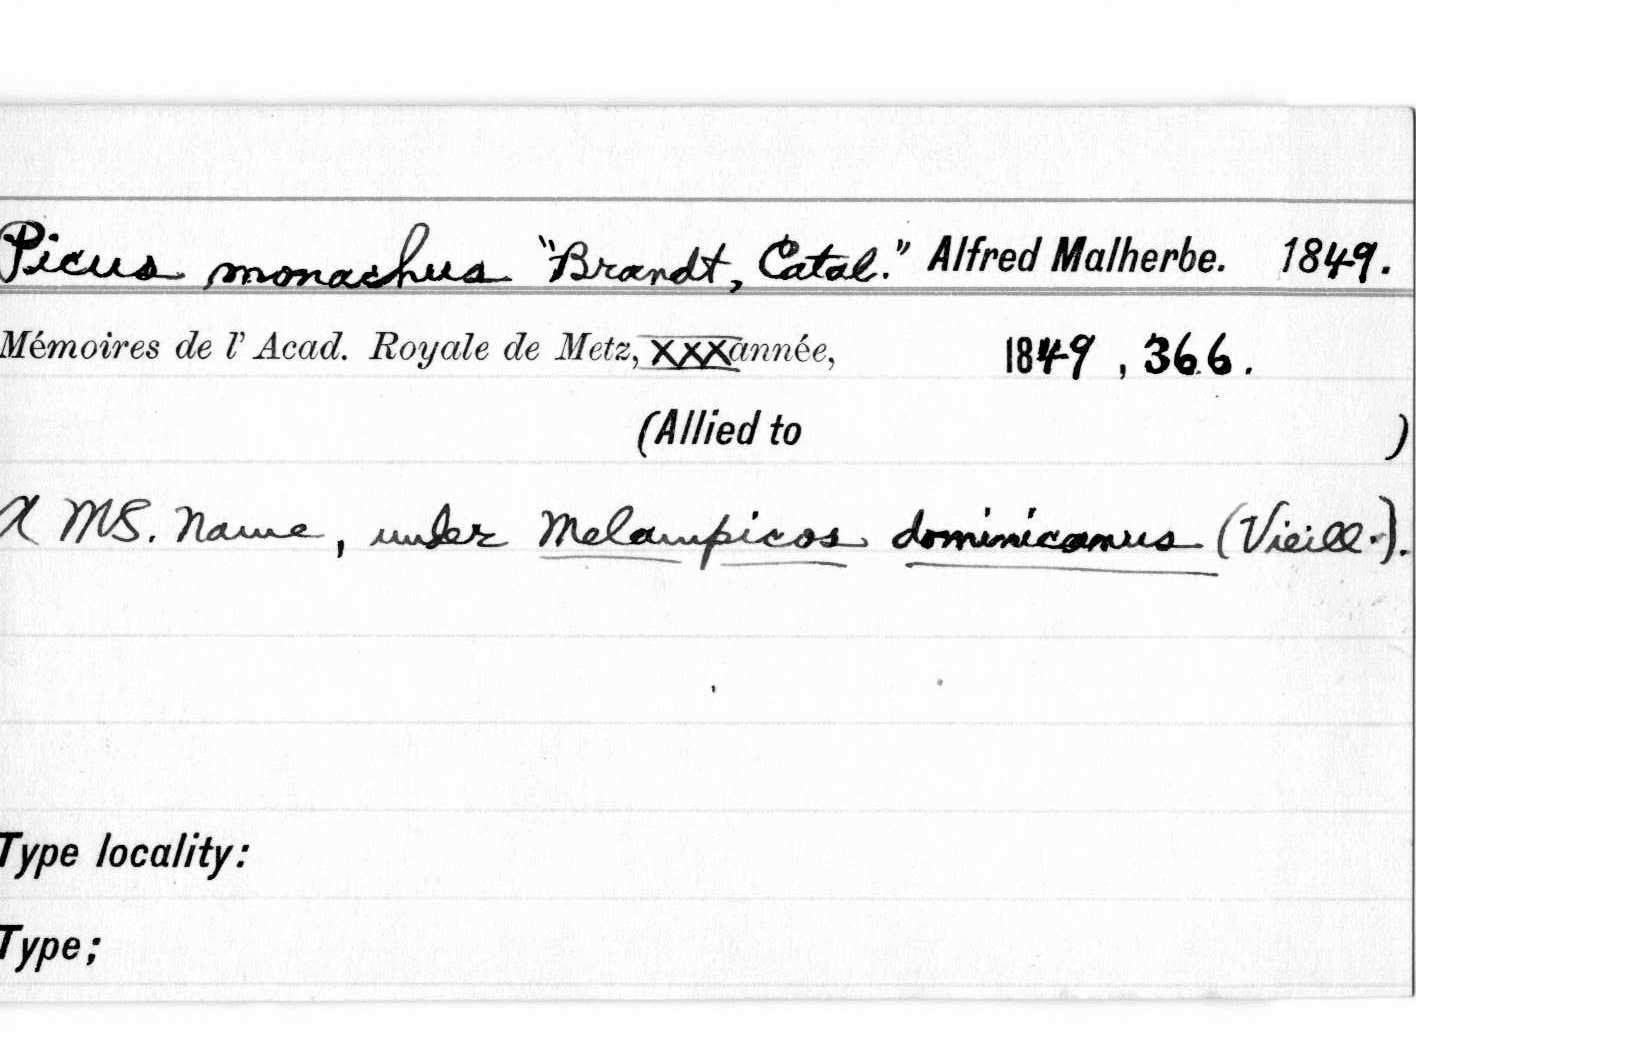 Picus monachus "Brandt, Catal." Alfred Malherbe. 1849.
Mémoires de l' Acad. Royale de Metz, XXX année, 1849, 366.
(Allied to )
A MS. Name, under Melampicos dominicanus (Vieill.).
Type locality:
Type;